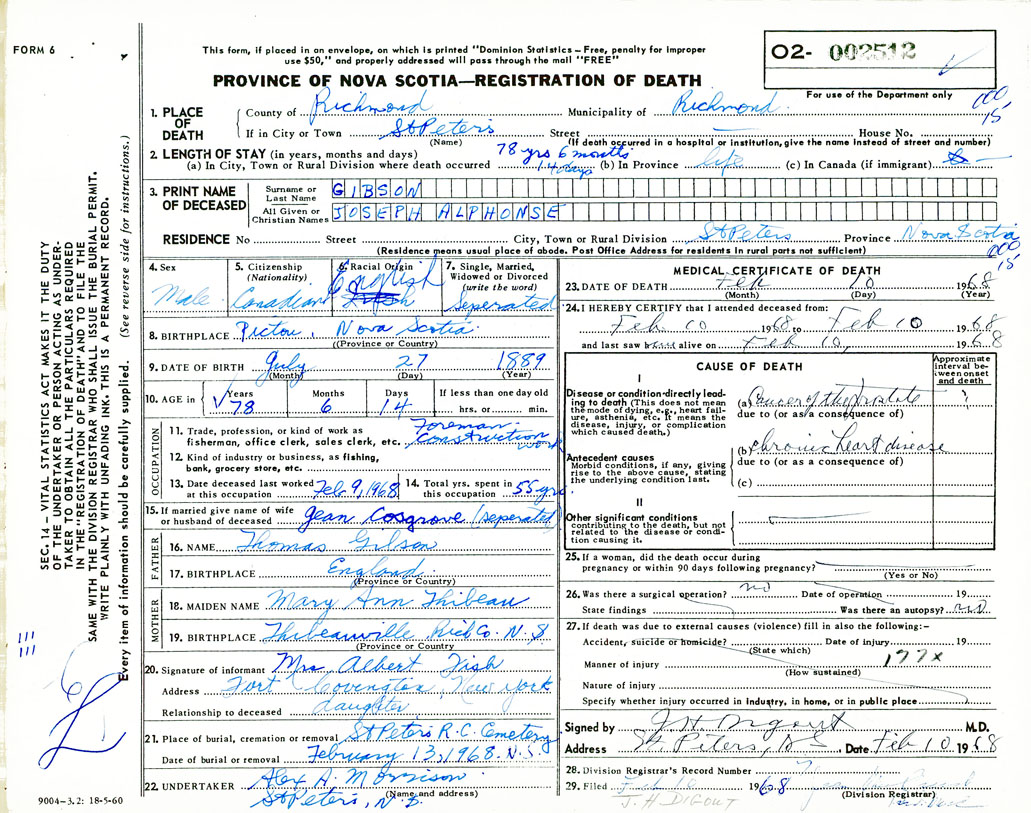 FORM 6
This form, if placed in an envelope, on which is printed "Dominion Statistics – Free, penalty for improper
use $50," and properly addressed will pass through the mail "FREE"
PROVINCE OF NOVA SCOTIA—REGISTRATION OF DEATH
O2- 002512
For use of the Department only
000
15
1. PLACE OF DEATH
County of Richmond Municipality of Richmond
If in City or Town St Peters Street — House No.
(Name) (If death occurred in a hospital or institution, give the name instead of street and number)
2. LENGTH OF STAY (in years, months and days) 78 yrs 6 months
(a) In City, Town or Rural Division where death occurred 14 days (b) In Province life (c) In Canada (if immigrant) —
3. PRINT NAME OF DECEASED
Surname or Last Name GIBSON
All Given or Christian Names JOSEPH ALPHONSE
RESIDENCE No Street City, Town or Rural Division St Peters Province Nova Scotia
(Residence means usual place of abode. Post Office Address for residents in rural parts not sufficient)
000
15
4. Sex
Male
5. Citizenship
(Nationality)
Canadian
6. Racial Origin
English
7. Single, Married,
Widowed or Divorced
(write the word)
Seperated
8. BIRTHPLACE Pictou, Nova Scotia
(Province or Country)
9. DATE OF BIRTH July 27 1889
(Month) (Day) (Year)
10. AGE in Years Months Days If less than one day old
78 6 14 hrs. or min.
OCCUPATION
11. Trade, profession, or kind of work as Foreman
fisherman, office clerk, sales clerk, etc. Construction work
12. Kind of industry or business, as fishing,
bank, grocery store, etc.
13. Date deceased last worked
at this occupation Feb 9, 1968
14. Total yrs. spent in
this occupation 55 yrs
15. If married give name of wife
or husband of deceased Jean Cosgrove (seperated)
FATHER
16. NAME Thomas Gibson
17. BIRTHPLACE England
(Province or Country)
MOTHER
18. MAIDEN NAME Mary Ann Thibeau
19. BIRTHPLACE Thibeauville Rich Co. N.S.
(Province or Country)
20. Signature of informant Mrs Albert Fish
Address Fort Covington, New York
Relationship to deceased daughter
21. Place of burial, cremation or removal St Peters R.C. Cemetery
Date of burial or removal February 13, 1968. N.S.
22. UNDERTAKER Alex A. Morrison
(Name and address)
St Peters, N.S.
MEDICAL CERTIFICATE OF DEATH
23. DATE OF DEATH Feb 10 1968
(Month) (Day) (Year)
24. I HEREBY CERTIFY that I attended deceased from:
Feb 10 1968 to Feb 10 1968
and last saw him alive on Feb 10, 1968
CAUSE OF DEATH
Approximate
interval be-
tween onset
and death
I
Disease or condition-directly lead-
ing to death (This does not mean
the mode of dying, e.g., heart fail-
ure, asthenia, etc. It means the
disease, injury, or complication
which caused death.)
(a) Cancer of the prostate
due to (or as a consequence of)
Antecedent causes
Morbid conditions, if any, giving
rise to the above cause, stating
the underlying condition last.
(b) chronic heart disease
due to (or as a consequence of)
(c)
II
Other significant conditions
contributing to the death, but not
related to the disease or condi-
tion causing it.
25. If a woman, did the death occur during
pregnancy or within 90 days following pregnancy?
(Yes or No)
26. Was there a surgical operation? no Date of operation 19
State findings Was there an autopsy? no
27. If death was due to external causes (violence) fill in also the following:-
Accident, suicide or homicide? Date of injury 19
(State which)
177x
Manner of injury
(How sustained)
Nature of injury
Specify whether injury occurred in industry, in home, or in public place
Signed by J H Digout M.D.
Address St. Peters, NS Date Feb 10 1968
28. Division Registrar's Record Number
29. Filed 1968
(Division Registrar)
J. H DIGOUT
SEC. 14 – VITAL STATISTICS ACT MAKES IT THE DUTY
OF THE UNDERTAKER OR PERSON ACTING AS UNDER-
TAKER TO OBTAIN ALL THE PARTICULARS REQUIRED
IN THE "REGISTRATION OF DEATH" AND TO FILE THE
SAME WITH THE DIVISION REGISTRAR WHO SHALL ISSUE THE BURIAL PERMIT.
WRITE PLAINLY WITH UNFADING INK. THIS IS A PERMANENT RECORD.
Every item of information should be carefully supplied. (See reverse side for instructions.)
111
111
9004-3.2: 18-5-60